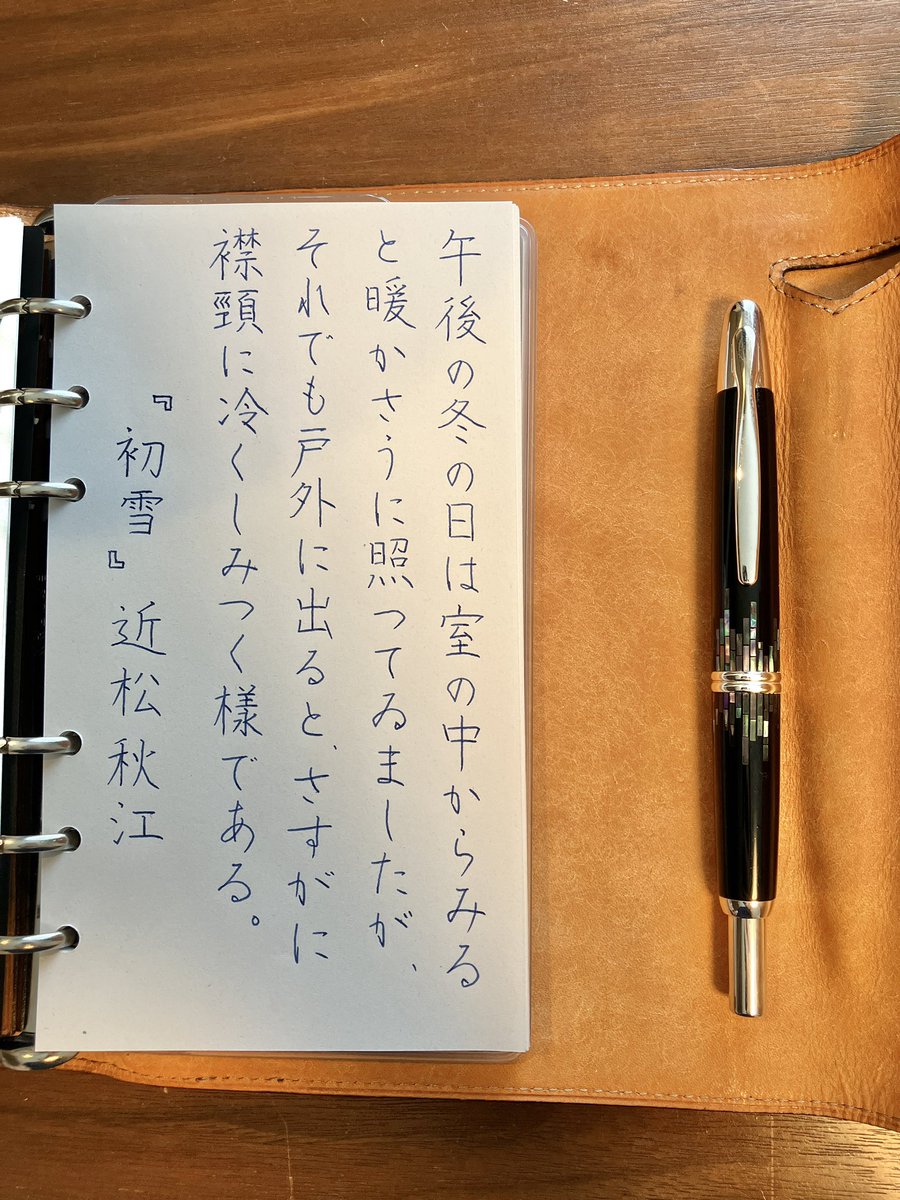 午後の冬の日は室の中からみる
と暖かさうに照つてゐましたが、
それでも戸外に出ると、さすがに
襟頸に冷くしみつく様である。
『初雪』近松秋江